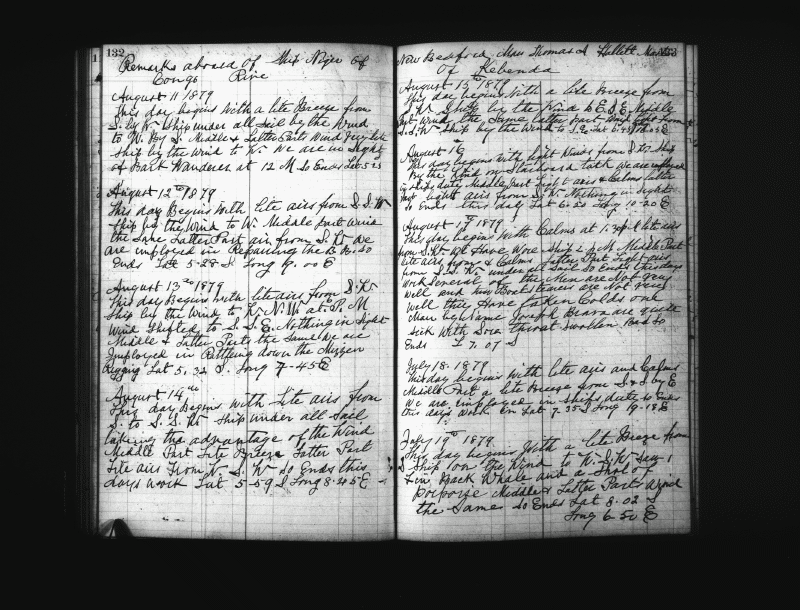 132
Remarks abroad of Ship Niger of
Congo River
August 11 1879
This day begins with a lite Breeze from
S. by W. Ship under all sail by the Wind
to W. By S. Middle & Latter Part Wind
Ship by the Wind to W. We are in Sight
of Bark Wanderer at 12 M So Ends Lat 5-23
August 12th 1879
This day Begins with lite airs from S.S.W
Ship by the Wind to W. Middle part Wind
the Same Latter Part air from S.W. We
are imployed in Repairing the So
Ends Lat 5-28 S Long 9.00 E
August 13th 1879
This day Begins with lite airs from S.W
Ship by the Wind to W.N.W. at P.M
Wind Shifted to S.S.E. Nothing in Sight
Middle & Latter Parts the Same We are
Imployed in Rattling down the Mizzen
Rigging Lat 5.32 S. Long 7-45 E
August 14th
This day Begins with Lite airs from
S. to S.S.W. Ship under all Sail
taking the advantage of the Wind
Middle Part Lite Breeze Latter Part
Lite airs From W. S.W. So Ends this
days work Lat 5-59 S Long 8.45 E
New Bedford, Mass Thomas A Hallett Master 133
Of Kebenda
August 15th 1879
This day begins With a lite Breeze from
S.W. Ship by the Wind to E.S.E. Middle
Part Wind the Same latter part Wind light from
S.S.W. Ship by the Wind to
August 16
This day begins with light Winds from S. to Ship
By the Wind on Starboard tack We are imployed
in ships duty Middle Part light airs & Calms latter
Part light airs from S.W. Nothing in Sight
So Ends this day Lat 6.20 Long 10-20 E
August 17th 1879
This day begins With Calms at 1.30 P lite airs
from S.W. We Have Wore Ship 2 P.M Middle Part
lite airs from S Calms Latter Part Light airs
from S.S.W. under all Sail So Ends this days
Work Several of the Men are Not very
Well and two Boatsteerers are Not very
Well they Have taken Colds one
Man by Name Joseph is quite
Sick With Sore throat Swollen Bad So
Ends L 7.07 S
July 18. 1879
This day begins with lite airs and Calms
Middle Part a lite Breeze from S & S by E
We are Employed in Ships duty So Ends
this days Work Lat 7.35 S Long 9-18 E
July 19th 1879
This day begins With a lite Breeze from
S Ship on the Wind to W.S.W. Saw 1
Fin Back Whale and a Shol of
Porporse Middle & Latter Parts Wind
the Same So Ends Lat 8.02 S
Long 6-50 E